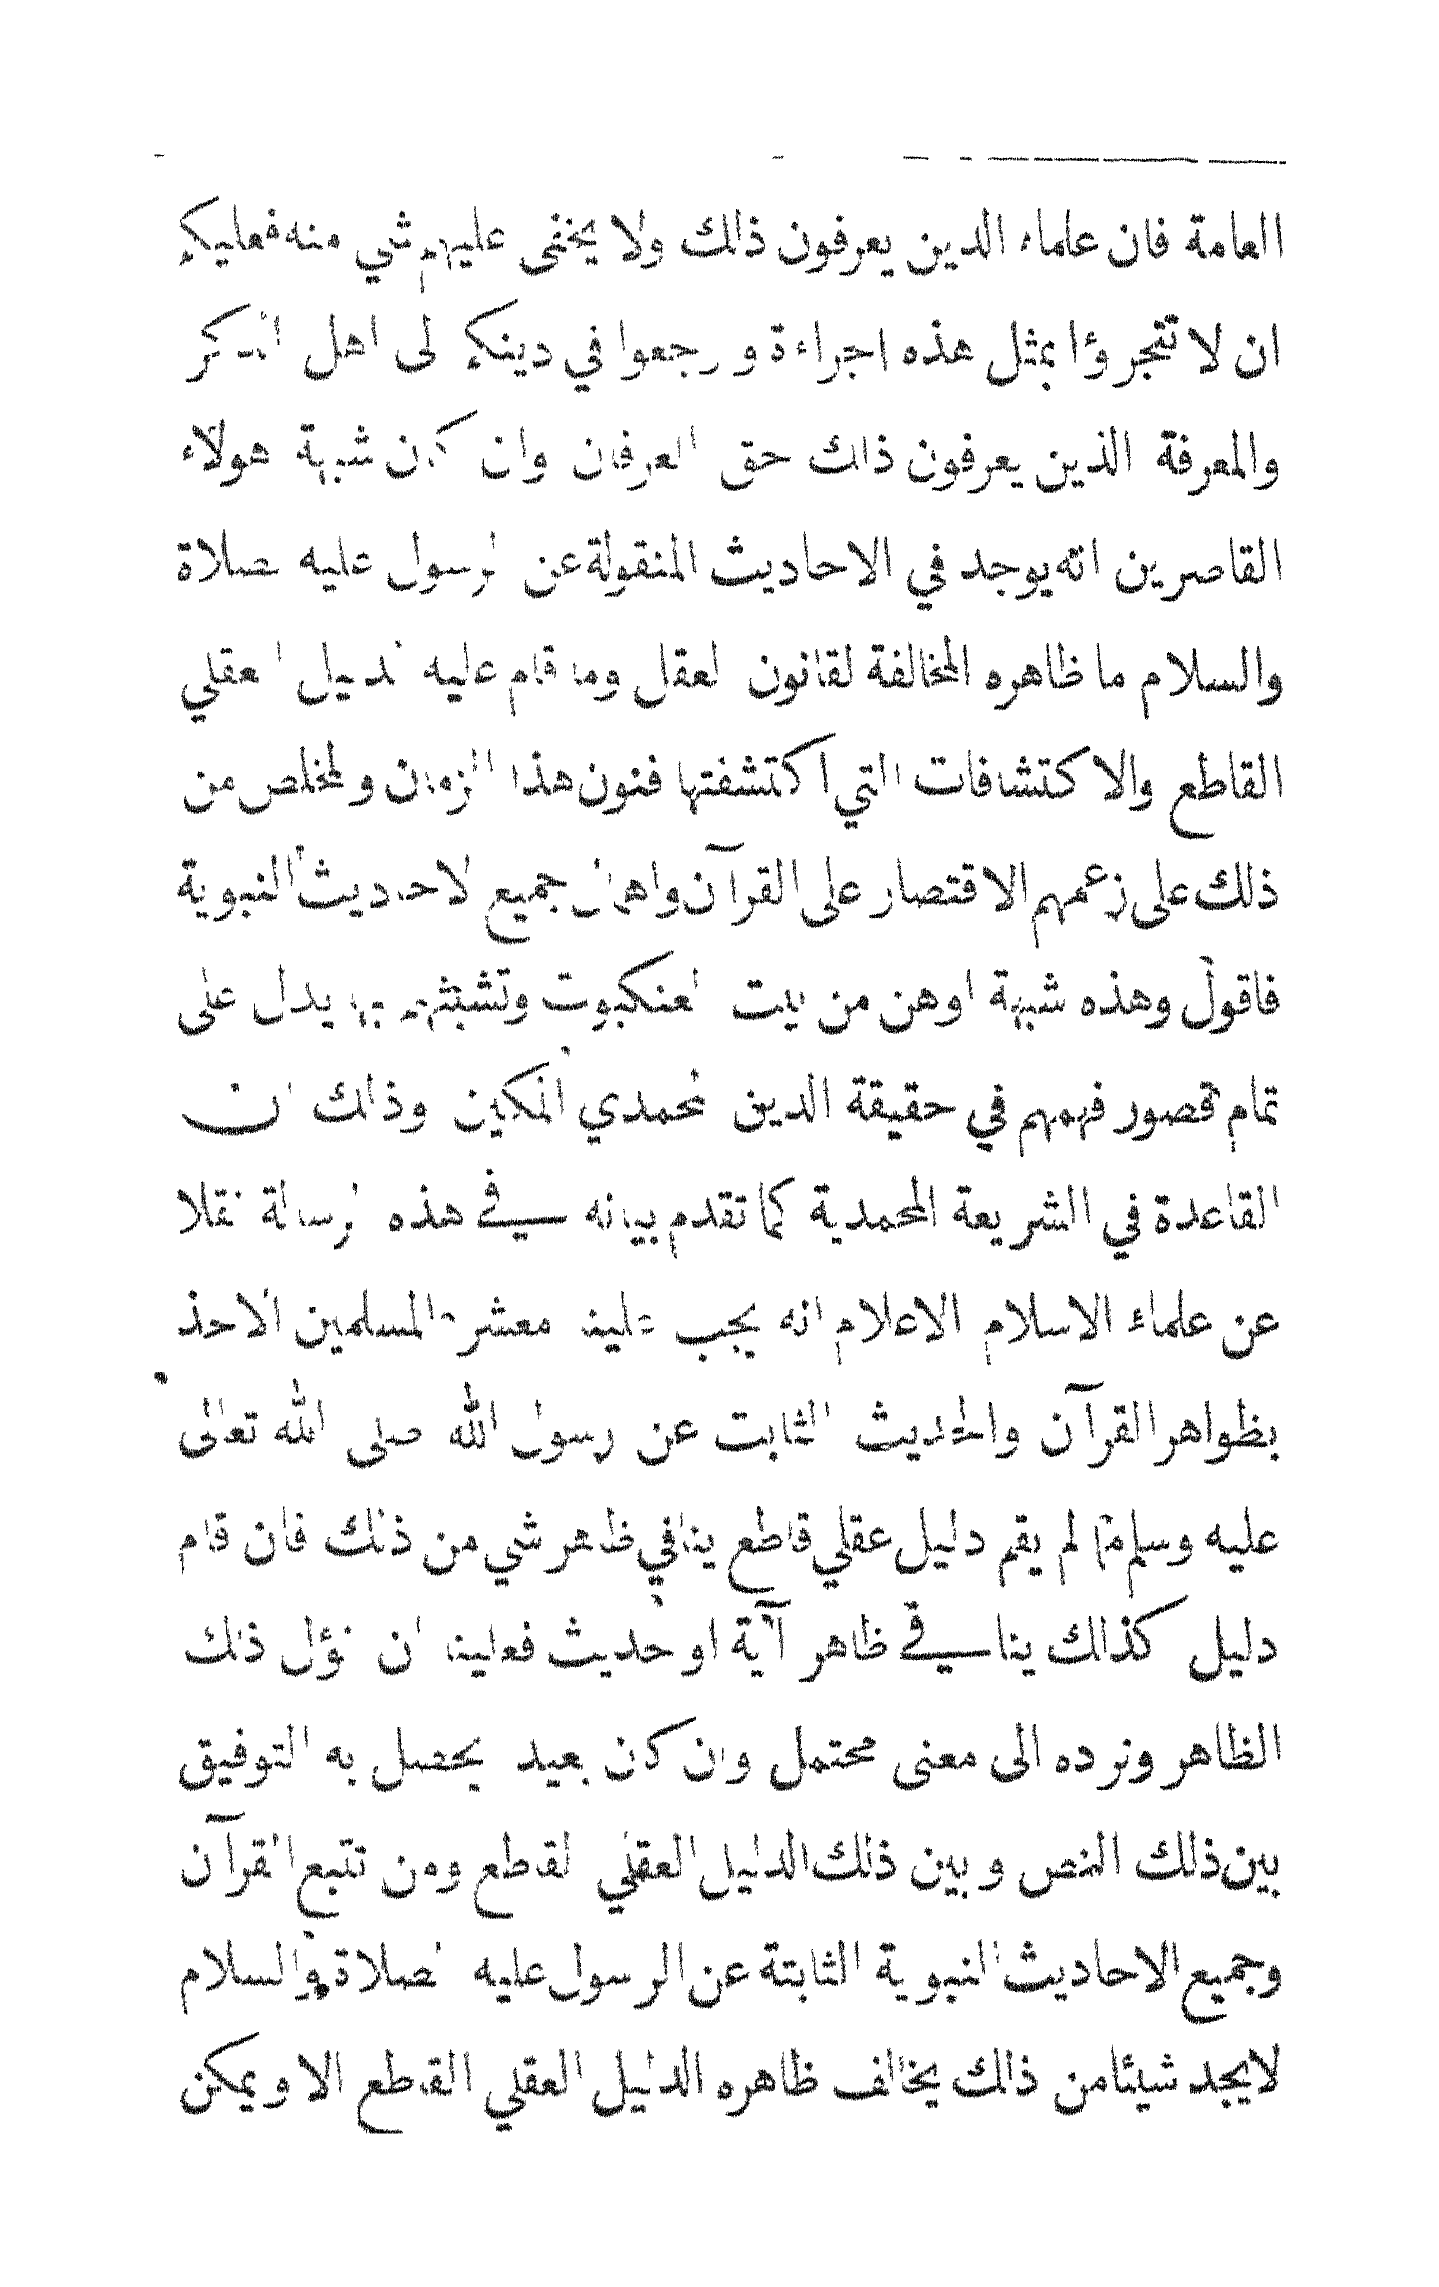 العامة فان علماء الدين يعرفون ذلك ولا يخفى عليهم شي منه فعليكم
ان لا تتجرؤا بمثل هذه الجراءة وارجعوا في دينكم الى اهل الذكر
والمعرفة الذين يعرفون ذلك حق العرفان وان كان شبهة هولاء
القاصرين انه يوجد في الاحاديث المنقولة عن الرسول عليه الصلاة
والسلام ما ظاهره المخالفة لقانون العقل وما قام عليه الدليل العقلي
القاطع والاكتشافات التي اكتشفتها فنون هذا الزمان والمخلص من
ذلك على زعمهم الاقتصار على القرآن واهمال جميع الاحاديث النبوية
فاقول وهذه شبهة اوهن من بيت العنكبوت وتشبثهم بها يدل على
تمام قصور فهمهم في حقيقة الدين المحمدي المكين وذلك ان
القاعدة في الشريعة المحمدية كما تقدم بيانه في هذه الرسالة نقلا
عن علماء الاسلام الاعلام انه يجب علينا معشر المسلمين الاخذ
بظواهر القرآن والحديث الثابت عن رسول الله صلى الله تعالى
عليه وسلم ما لم يقم دليل عقلي قاطع ينافي ظاهر شي من ذلك فان قام
دليل كذلك ينافي ظاهر آية او حديث فعلينا ان نؤل ذلك
الظاهر ونرده الى معنى محتمل وان كان بعيد يحصل به التوفيق
بين ذلك النص وبين ذلك الدليل العقلي القاطع ومن تتبع القرآن
وجميع الاحاديث النبوية الثابتة عن الرسول عليه الصلاة والسلام
لا يجد شيئا من ذلك يخالف ظاهره الدليل العقلي القاطع الا ويمكن